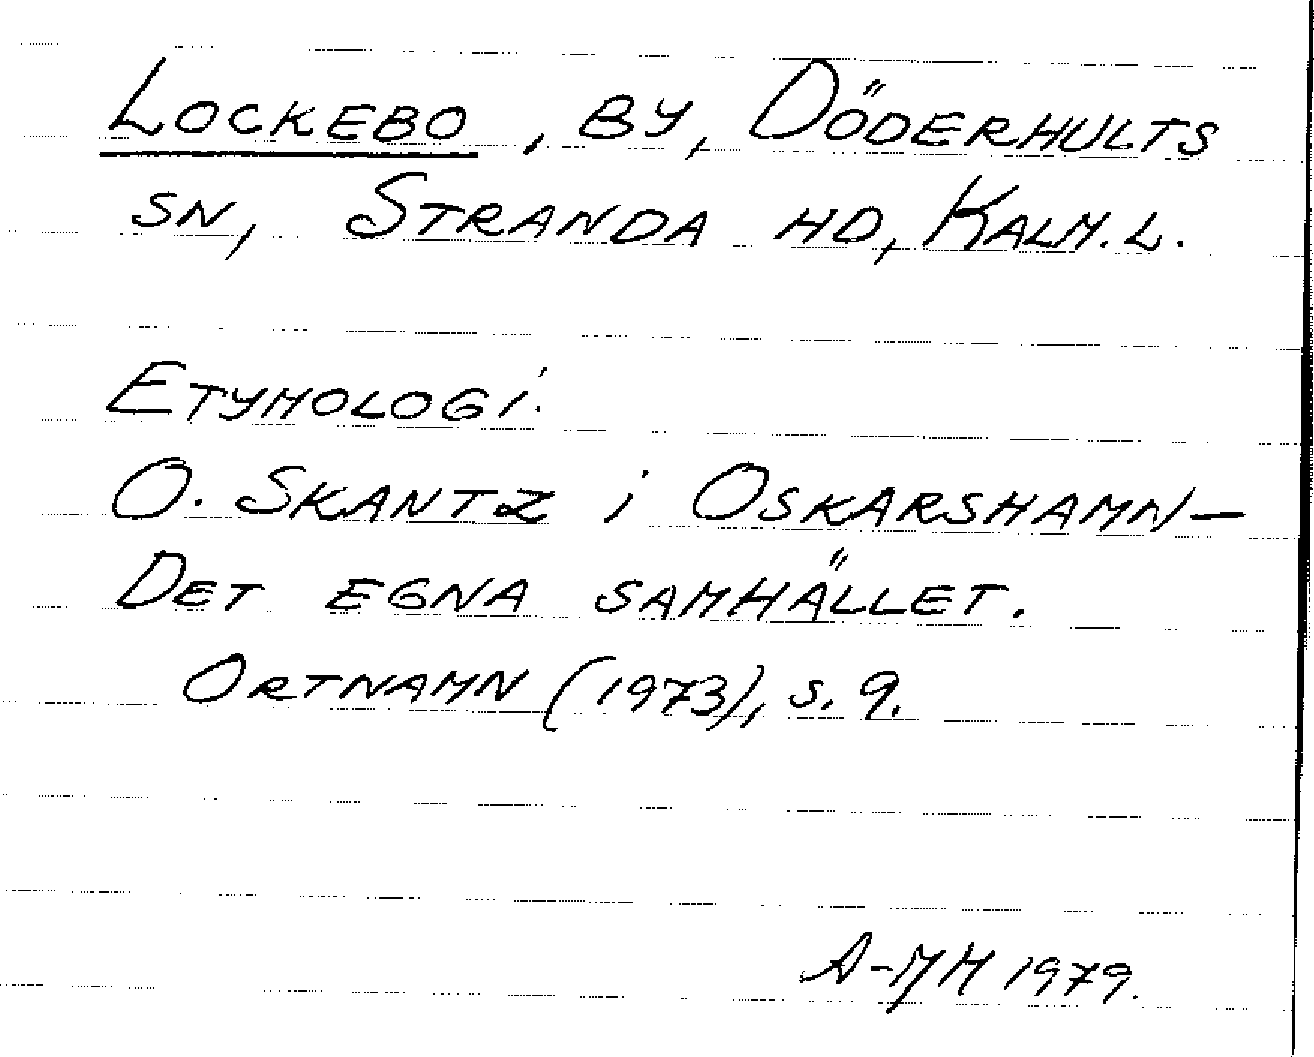 Lockebo, by, Döderhults
sn, Stranda hd, Kalm. l.
Etymologi:
O. Skantz i Oskarshamn –
Det egna samhället.
Ortnamn (1973), s. 9.
A-MH 1979.